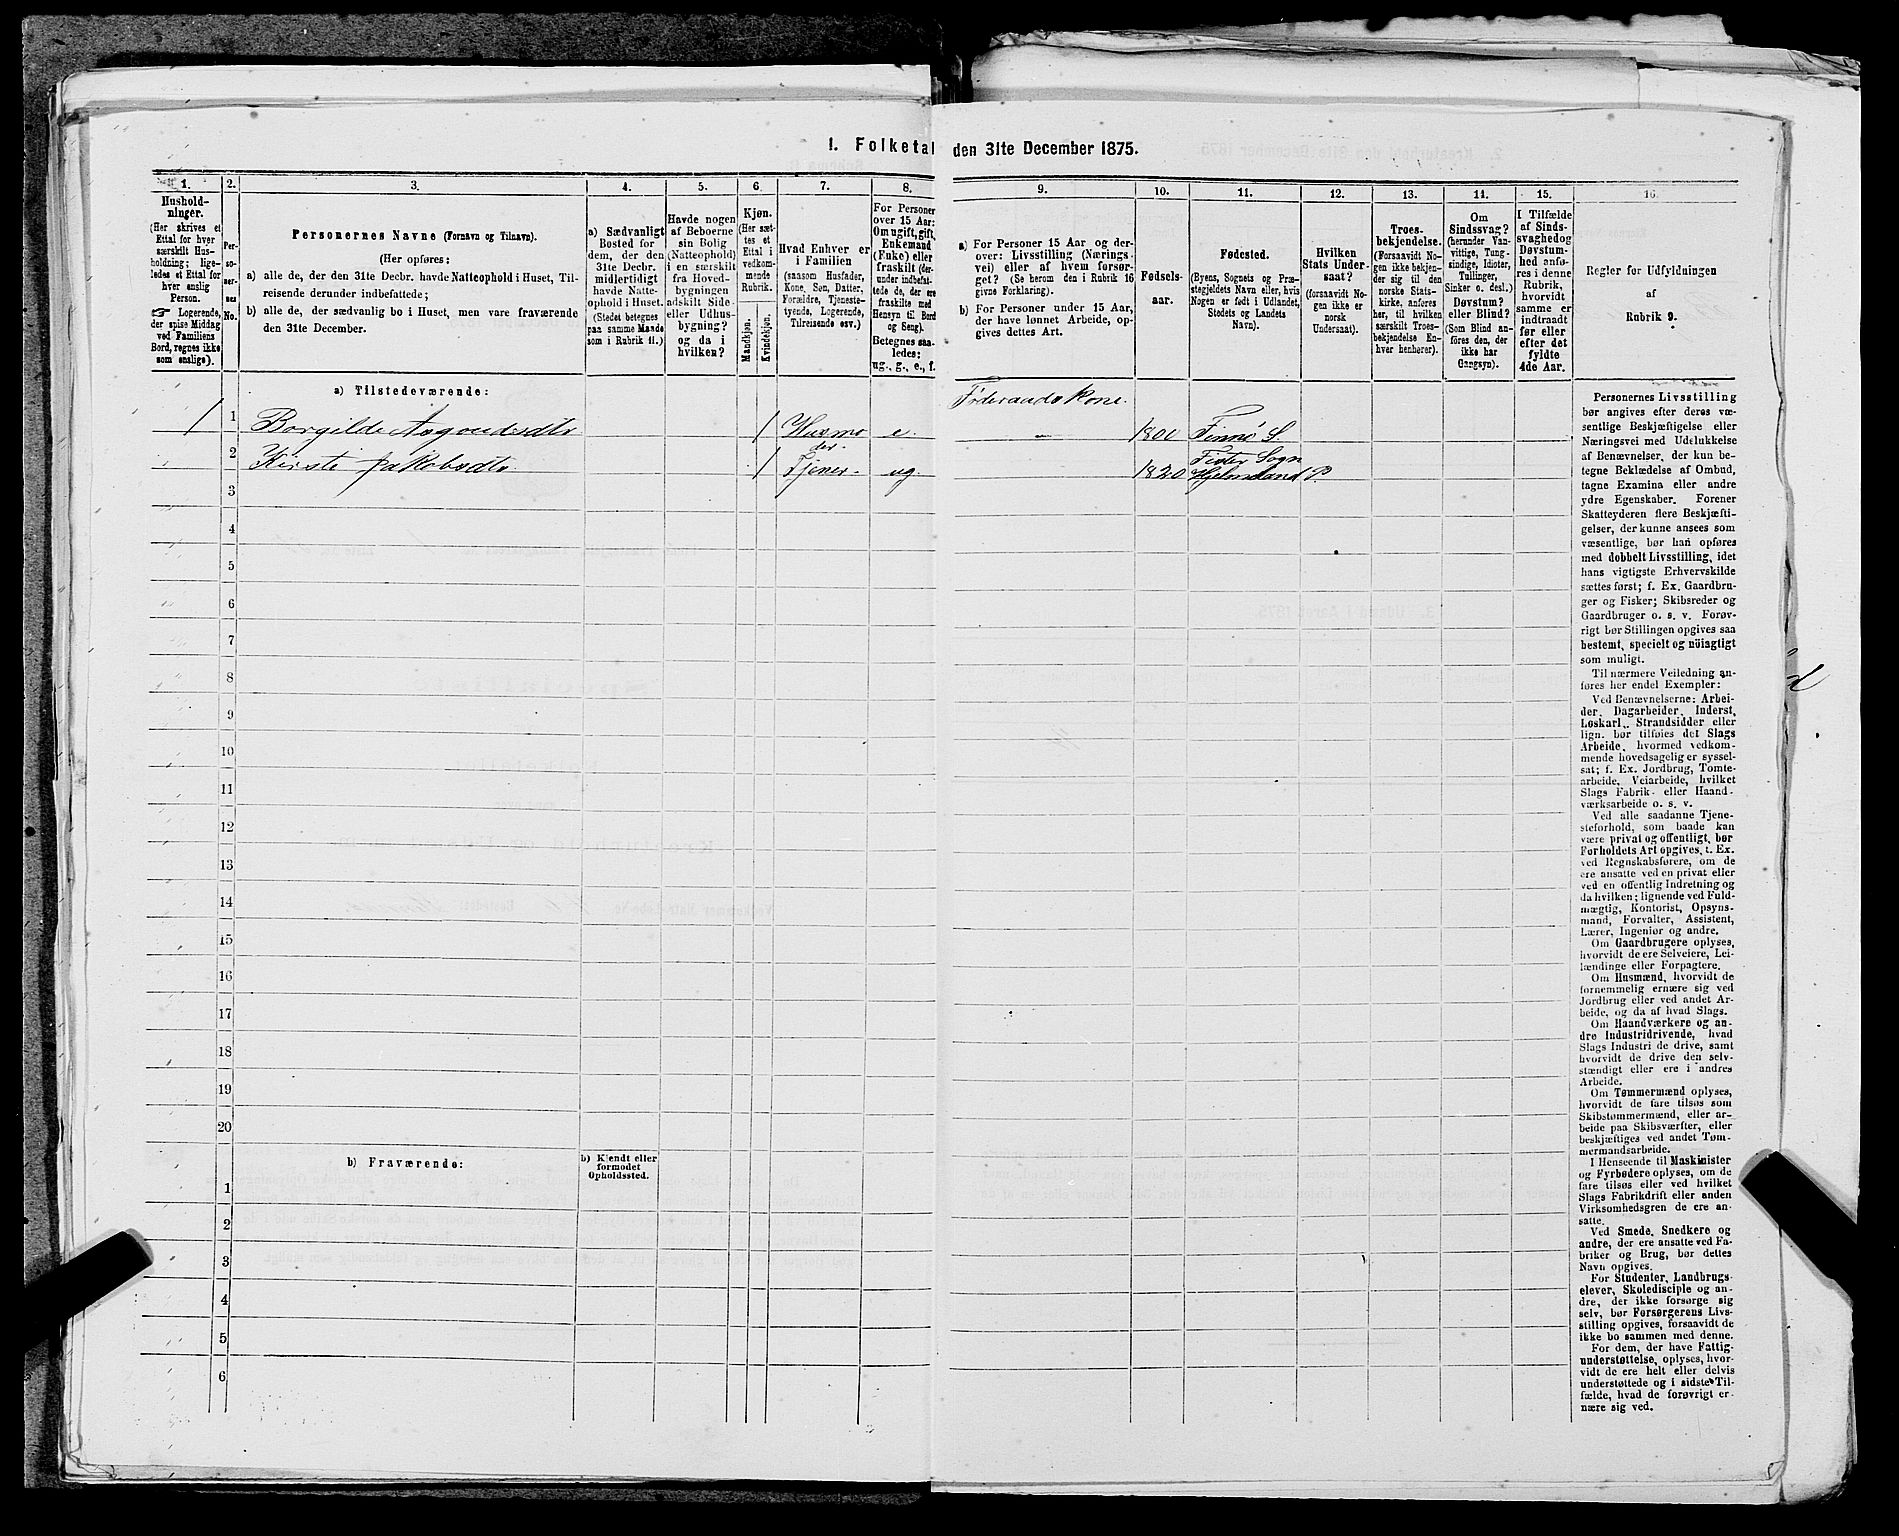 1. Folketal den 31te December 1875.
1. 2. 3. 4. 5. 6. 7. 8. 9. 10. 11. 12. 13. 14. 15. 16.
Hushold-
ninger.
(Her skrives et
Ettal for hver
særskilt Hus-
holdning; lige-
ledes et Ettal for
hver enslig
Person.
☞ Logerende,
der spise Middag
ved Familiens
Bord, regnes ikke
som enslige).
Per-
so-
ner-
nes
No.
Personernes Navne (Fornavn og Tilnavn).
(Her opføres:
a) alle de, der den 31te Decbr. havde Natteophold i Huset, Til-
reisende derunder indbefattede;
b) alle de, der sædvanlig bo i Huset, men vare fraværende
den 31te December.
a) Sædvanligt
Bosted for
dem, der den
31te Decbr.
midlertidigt
havde Natte-
ophold i Huset.
(Stedet betegnes
paa samme Maade
som i Rubrik 11.)
Havde nogen
af Beboerne
sin Bolig
(Natteophold)
i en særskilt
fra Hoved-
bygningen
adskilt Side-
eller Udhus-
bygning?
og da i
hvilken?
Kjøn.
(Her sæt-
tes et
Ettal i
vedkom-
mende
Rubrik.
Mandkjøn.
Kvindekjøn.
Hvad Enhver er
i Familien
(saasom Husfader,
Kone, Søn, Datter,
Forældre, Tjeneste-
tyende, Logerende,
Tilreisende osv.)
For Personer
over 15 Aar:
Om ugift, gift,
Enkemand
(Enke) eller
fraskilt (der-
under indbefat-
tede de, der ere
fraskilte med
Hensyn til Bord
og Seng).
Betegnes saa-
ledes:
ug., g., e., f.
a) For Personer 15 Aar og der-
over: Livsstilling (Nærings-
vei) eller af hvem forsør-
get? (Se herom den i Rubrik 16
givne Forklaring).
b) For Personer under 15 Aar,
der have lønnet Arbeide, op-
gives dettes Art.
Fødsels-
aar.
Fødested.
(Byens, Sognets og Præ-
stegjeldets Navn eller, hvis
Nogen er født i Udlandet,
Stedets og Landets
Navn).
Hvilken
Stats Under-
saat?
(forsaavidt No-
gen ikke er
norsk
Undersaat).
Troes-
bekjendelse.
(Forsaavidt No-
gen ikke bekjen-
der sig til den
norske Stats-
kirke, anføres
her, til hvilken
særskilt Troes-
bekjendelse En-
hver henhører).
Om
Sindssvag?
(herunder Van-
vittige, Tung-
sindige, Idioter,
Tullinger,
Sinker o. desl.)
Døvstum?
eller Blind?
(Som Blind an-
føres den, der
ikke har
Gangsyn).
I Tilfælde
af Sinds-
svaghed og
Døvstum-
hed anfø-
res i denne
Rubrik,
hvorvidt
samme er
indtraadt
før eller
efter det
fyldte
4de Aar.
Regler for Udfyldningen
af
Rubrik 9.
a) Tilstedeværende:
Føderaads Kone.
1 1 Borgilde Asgoudsdtr 1 Husmo e. 1800 Finnø S.
der.
Fister Sogn
2 Kirsti Jakobsdtr 1 Tjener. ug. 1820 Hjelmeland P.
3
4
5
6
7
8
9
10
11
12
13
14
15
16
17
18
19
20
b) Fraværende:
b) Kjendt eller
formodet
Opholdssted.
1
2
3
4
5
6
Personernes Livsstilling
bør angives efter deres væ-
sentlige Beskjæftigelse eller
Næringsvei med Udelukkelse
af Benævnelser, der kun be-
tegne Beklædelse af Ombud,
tagne Examina eller andre
ydre Egenskaber. Forener
Skatteyderen flere Beskjæfti-
gelser, der kunne ansees som
væsentlige, bør han opføres
med dobbelt Livsstilling, idet
hans vigtigste Erhvervskilde
sættes først; f. Ex. Gaardbru-
ger og Fisker; Skibsreder og
Gaardbruger o. s. v. Forøv-
rigt bør Stillingen opgives saa
bestemt, specielt og nöiagtigt
som muligt.
Til nærmere Veiledning an-
føres her endel Exempler:
Ved Benævnelserne: Arbei-
der, Dagarbeider, Inderst,
Løskarl, Strandsidder eller
lign. bør tilføies det Slags
Arbeide, hvormed vedkom-
mende hovedsagelig er syssel-
sat; f. Ex. Jordbrug, Tomte-
arbeide, Veiarbeide, hvilket
Slags Fabrik- eller Haand-
værksarbeide o. s. v.
Ved alle saadanne Tjene-
steforhold, som baade kan
være privat og offentligt, bør
Forholdets Art opgives, t. Ex.
ved Regnskabsførere, om de
ere ansatte ved en privat eller
ved en offentlig Indretning og
da hvilken; lignende ved Fuld-
mægtig, Kontorist, Opsyns-
mand, Forvalter, Assistent,
Lærer, Ingeniør og andre.
Om Gaardbrugere oplyses,
hvorvidt de ere Selveiere, Lei-
lændinge eller Forpagtere.
Om Husmænd, hvorvidt de
fornemmelig ernære sig ved
Jordbrug eller ved andet Ar-
beide, og da af hvad Slags.
Om Haandværkere og an-
dre Industridrivende, hvad
Slags Industri de drive, samt
hvorvidt de drive den selv-
stændigt eller ere i andres
Arbeide.
Om Tømmermænd oplyses,
hvorvidt de fare tilsøs som
Skibstømmermænd, eller ar-
beide paa Skibsværfter, eller
beskjæftiges ved andet Tøm-
mermandsarbeide.
I Henseende til Maskinister
og Fyrbødere oplyses, om de
fare tilsøs eller ved hvilket
Slags Fabrikdrift eller anden
Virksomhedsgren de ere an-
satte.
Ved Smede, Snedkere og
andre, der ere ansatte ved Fa-
briker og Brug, bør dettes
Navn opgives.
For Studenter, Landbrugs-
elever, Skoledisciple og an-
dre, der ikke forsørge sig
selv, bør Forsørgerens Livs-
stilling opgives, forsaavidt de
ikke bo sammen med denne.
For dem, der have Fattig-
understøttelse, oplyses, hvor-
vidt de ere helt eller delvis
understøttede og i sidste Til-
fælde, hvad de forøvrigt er-
nære sig ved.